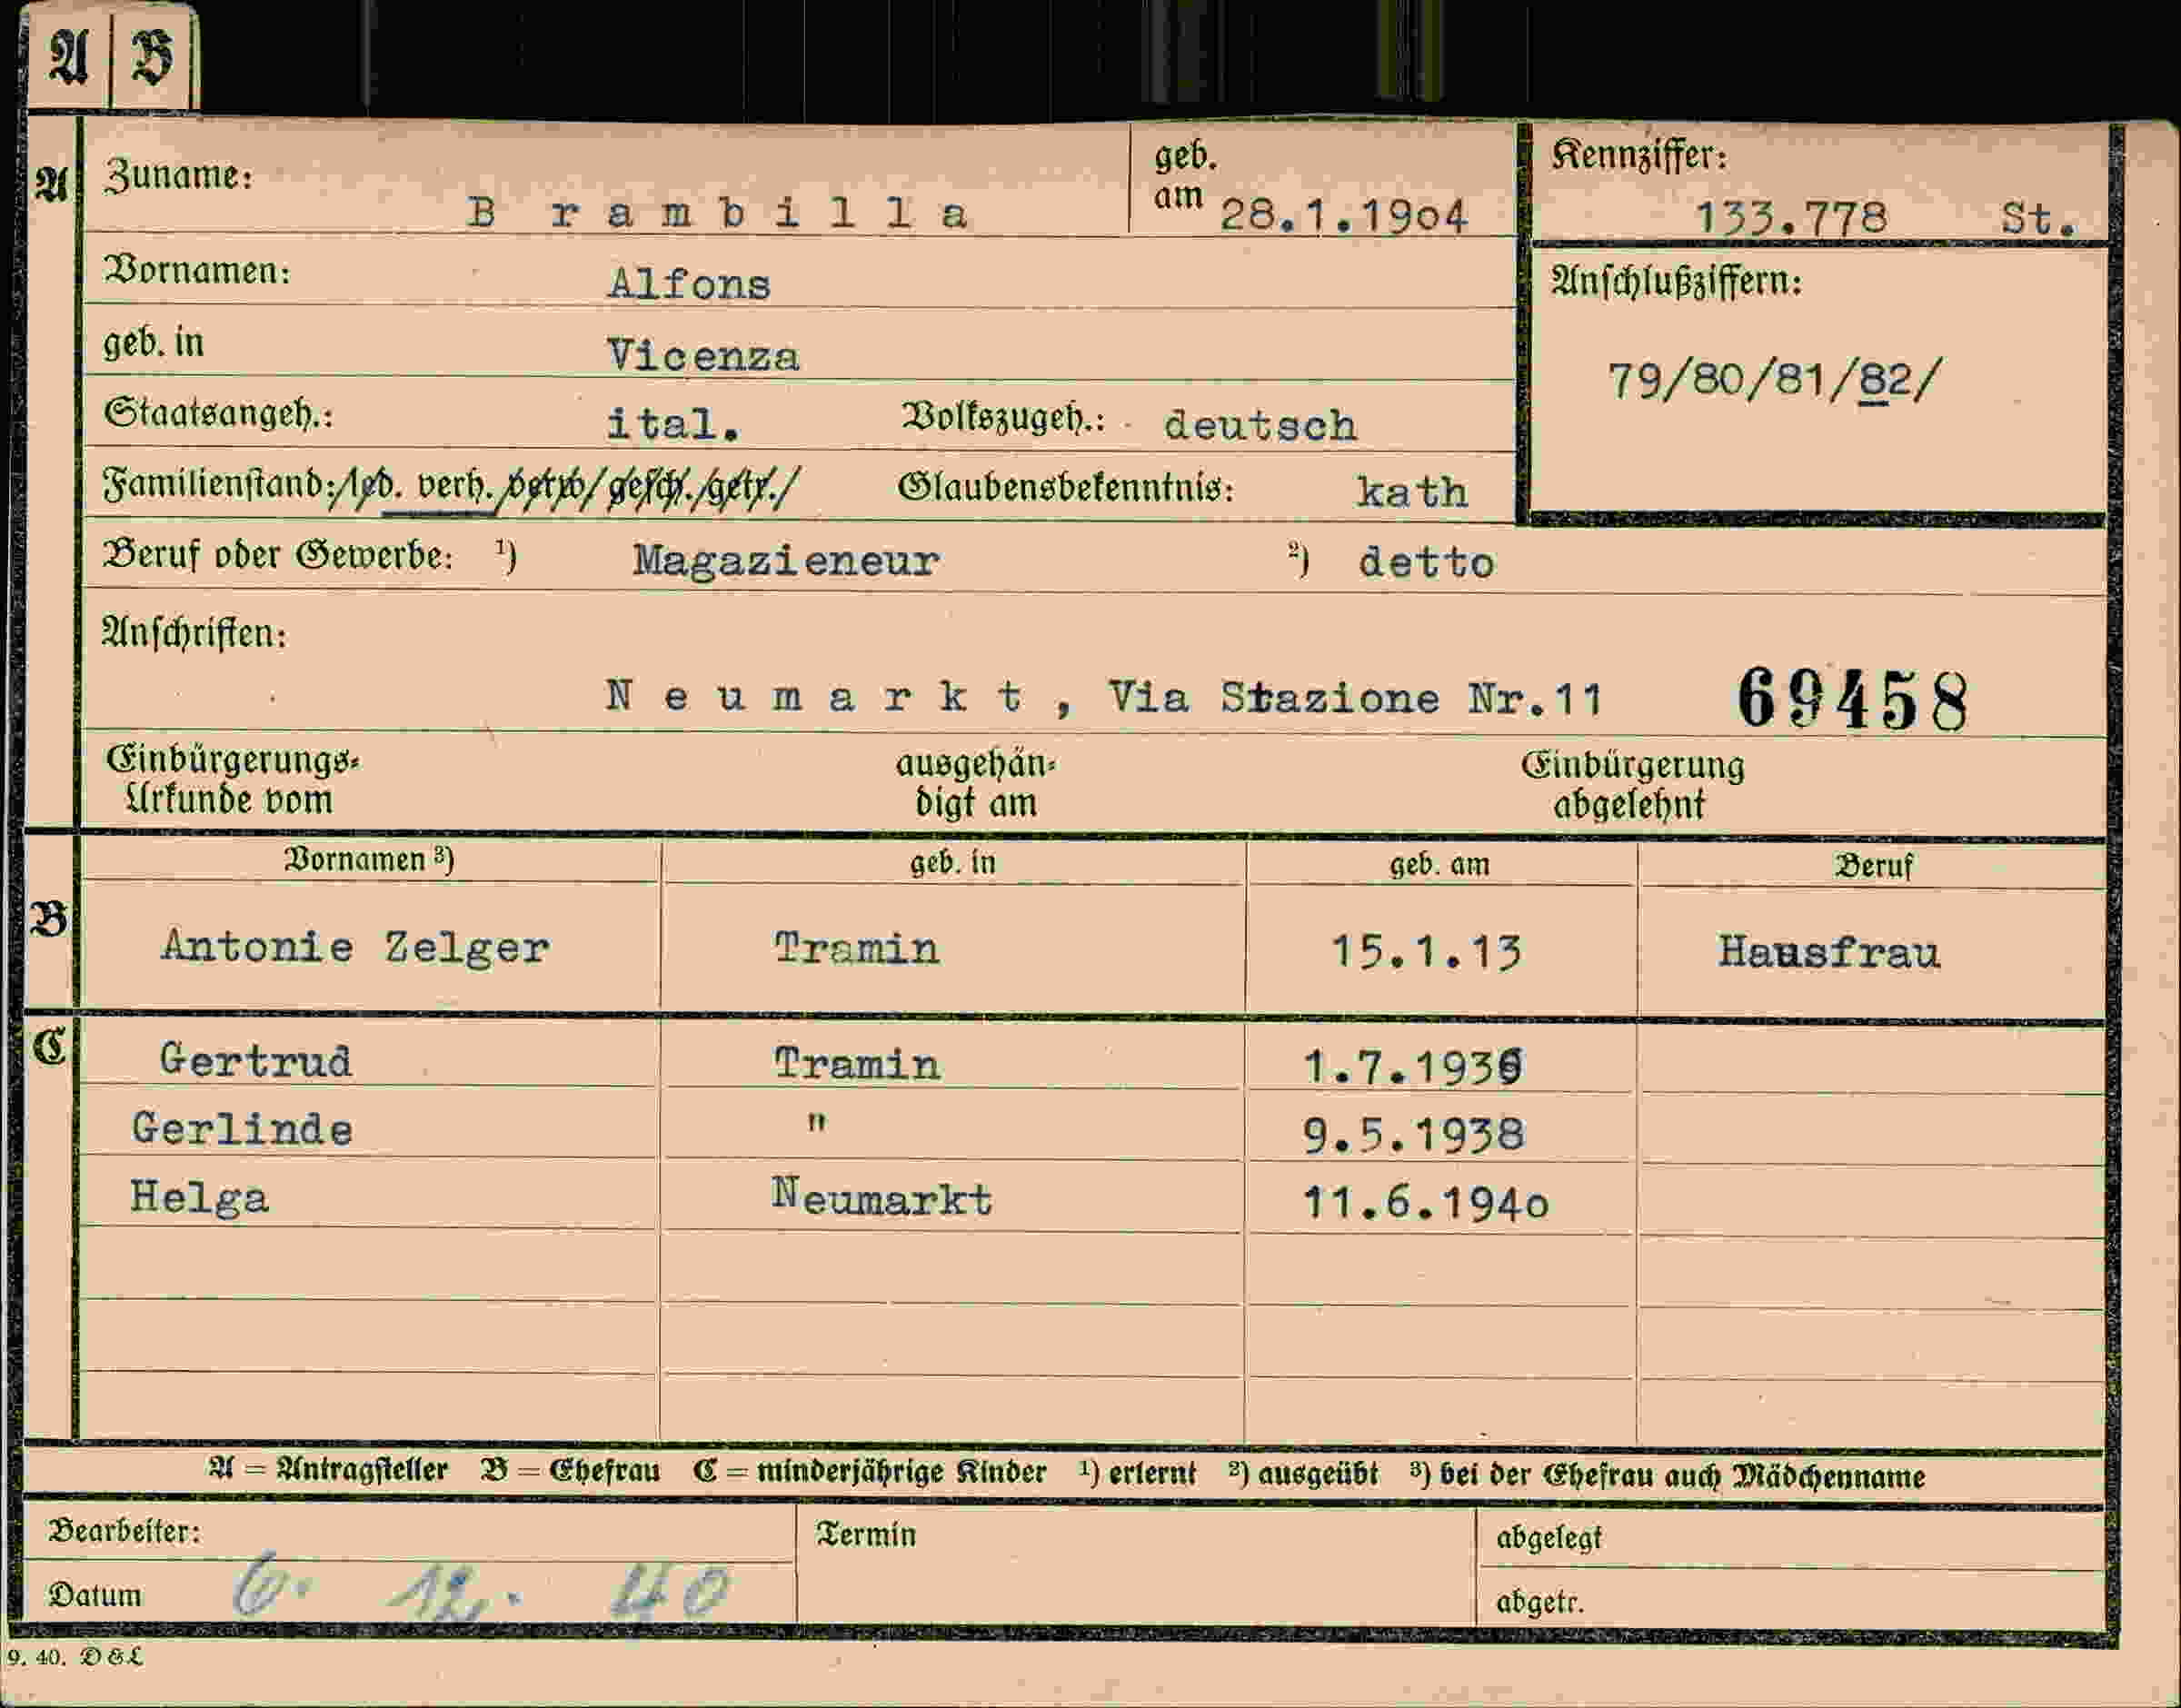 A B
A Zuname: Brambilla geb. am 28.1.19o4 Kennziffer: 133.778 St.
Vornamen: Alfons Anschlußziffern:
geb. in Vicenza 79/80/81/82/
Staatsangeh.: ital. Volkszugeh.: deutsch
Familienstand: led. verh. verw. gesch. getr. Glaubensbekenntnis: kath
Beruf oder Gewerbe: 1) Magazieneur 2) detto
Anschriften:
Neumarkt, Via Stazione Nr.11 69458
Einbürgerungs- ausgehän- Einbürgerung
Urkunde vom digt am abgelehnt
Vornamen 3) geb. in geb. am Beruf
B Antonie Zelger Tramin 15.1.13 Hausfrau
C Gertrud Tramin 1.7.1936
Gerlinde " 9.5.1938
Helga Neumarkt 11.6.194o
A = Antragsteller B = Ehefrau C = minderjährige Kinder 1) erlernt 2) ausgeübt 3) bei der Ehefrau auch Mädchenname
Bearbeiter: Termin abgelegt
Datum 6. 12. 40 abgetr.
9. 40. D & L